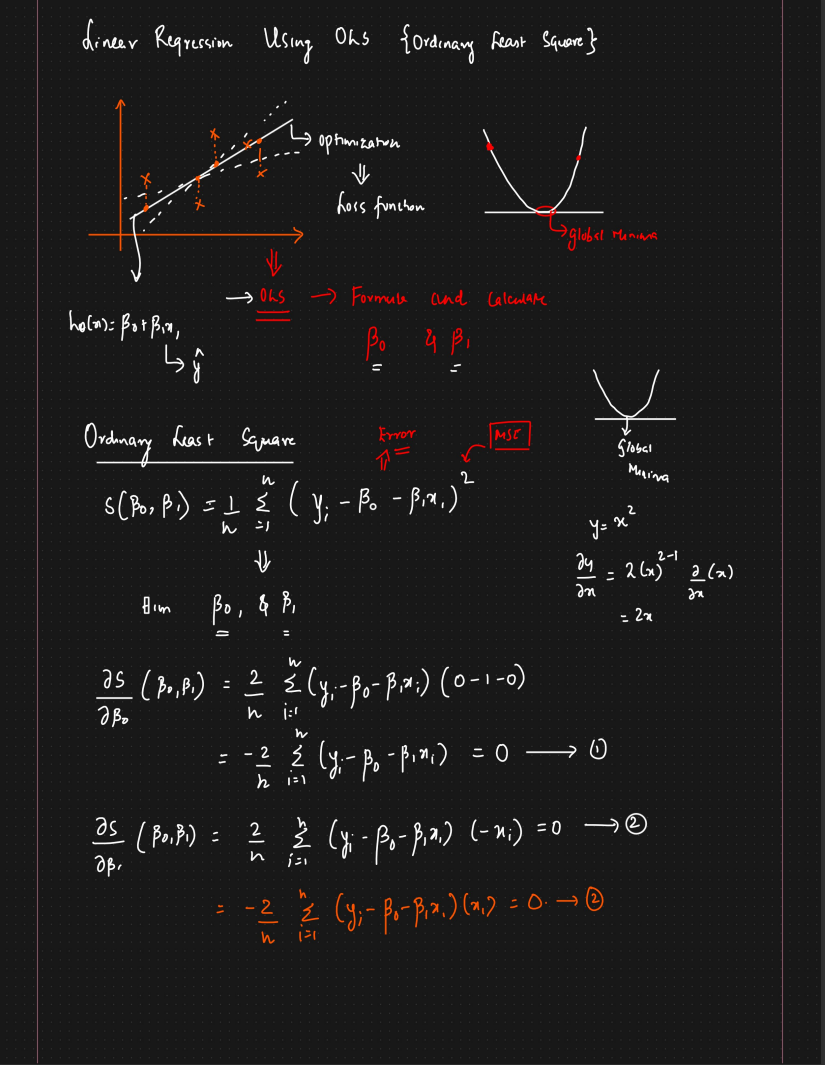 Linear Regression Using OLS {Ordinary Least Square}
optimization
⇓
Loss function
global Minima
⇓
→ OLS → Formula and Calculate
hθ(x) = β₀ + β₁x₁
ŷ
β₀ & β₁
Ordinary Least Square
Error
MSE
Global
Minima
S(β₀, β₁) = 1/n Σⁿᵢ₌₁ (yᵢ - β₀ - β₁xᵢ)²
y = x²
⇓
∂y/∂x = 2(x)²⁻¹ ∂/∂x (x)
= 2x
Aim β₀, & β₁
∂S/∂β₀ (β₀, β₁) = 2/n Σⁿᵢ₌₁ (yᵢ - β₀ - β₁xᵢ) (0-1-0)
= -2/n Σⁿᵢ₌₁ (yᵢ - β₀ - β₁xᵢ) = 0 → ①
∂S/∂β₁ (β₀, β₁) = 2/n Σⁿᵢ₌₁ (yᵢ - β₀ - β₁xᵢ) (-xᵢ) = 0 → ②
= -2/n Σⁿᵢ₌₁ (yᵢ - β₀ - β₁xᵢ)(xᵢ) = 0. → ②